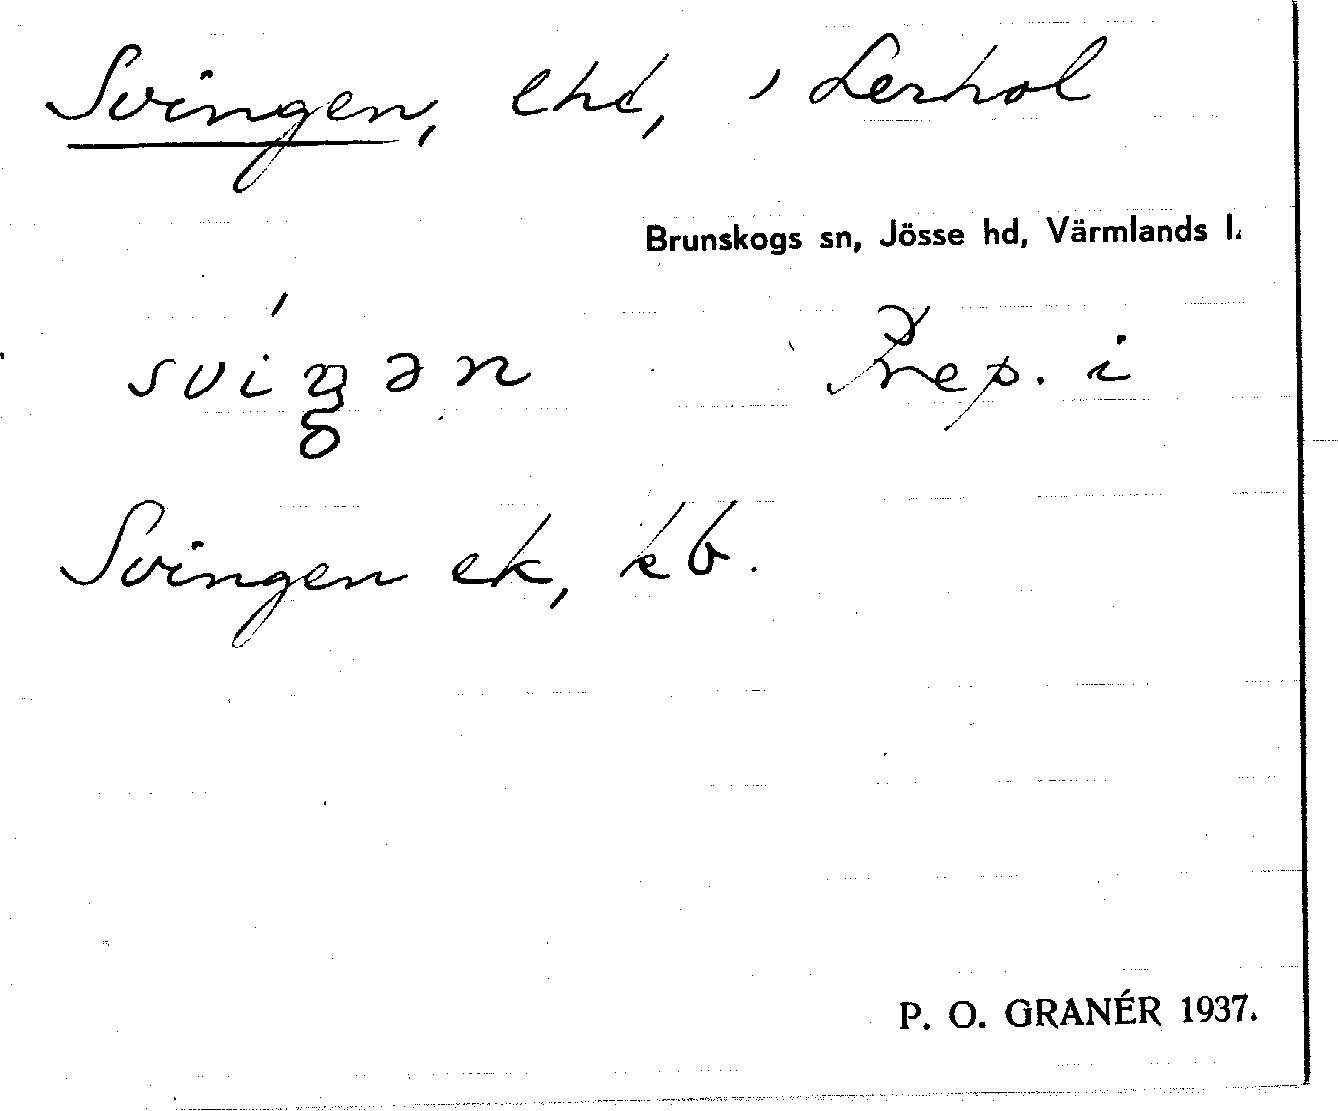 Svingen, lhl, i Lerhol
Brunskogs sn, Jösse hd, Värmlands l.
Prep. i
Svingen ek, kb.
P. O. GRANÉR 1937.